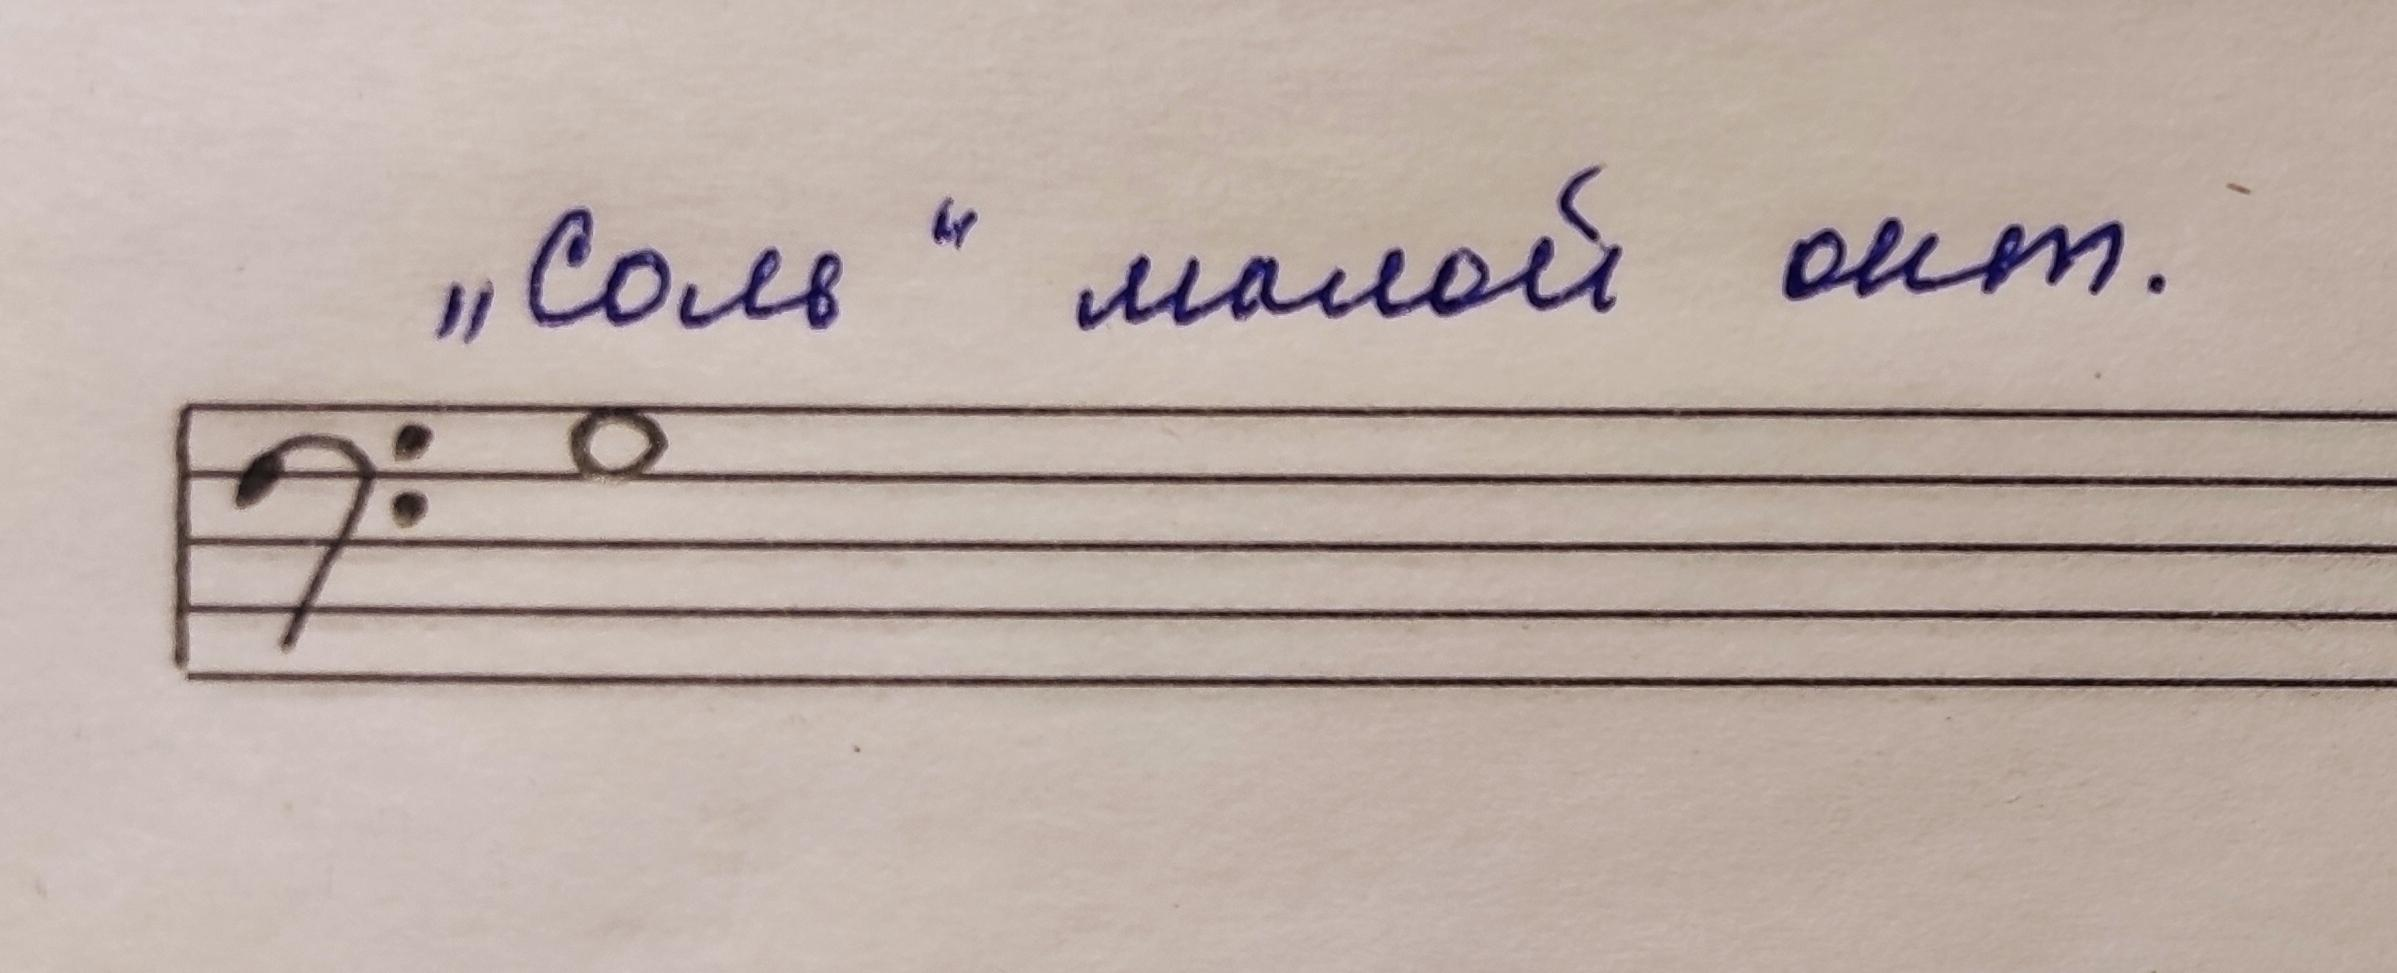 „Соль“ малой окт.